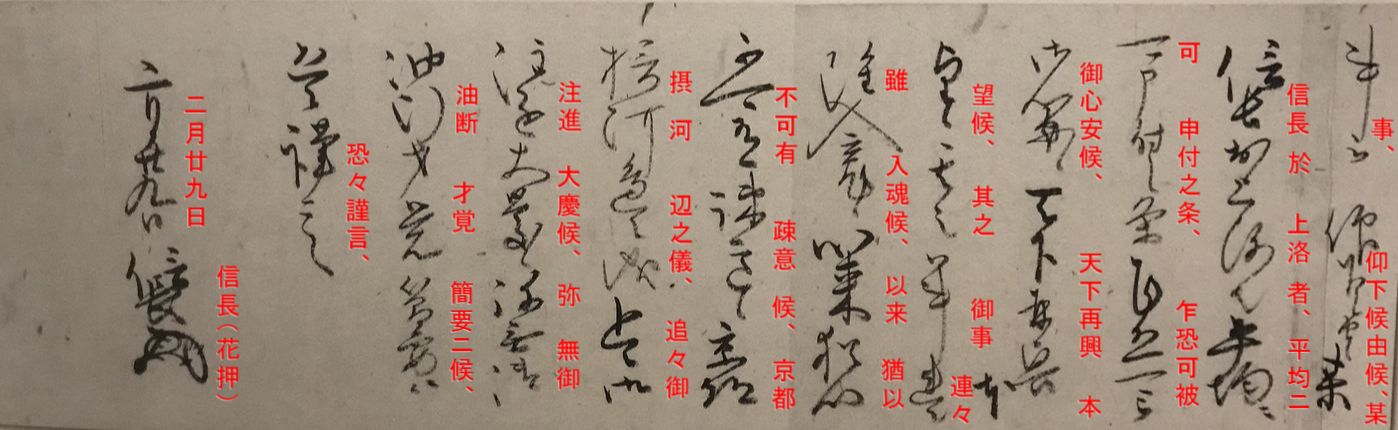 事、仰下候由候、某
信長 於 上洛 者、平均ニ
可 申付之条、乍恐可被
御心安候、天下再興 本
望候、其之 御事 連々
雖 入魂候、以来 猶以
不可有 疎意 候、京都
摂 河 辺之儀、追々御
注進 大慶候、弥 無御
油断 才覚 簡要ニ候、
恐々謹言、
二月廿九日
信長（花押）